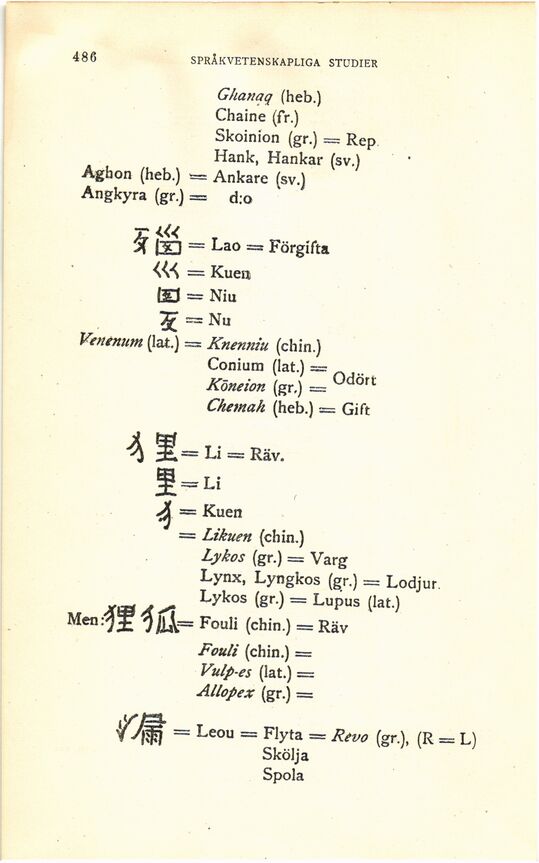 486
SPRÅKVETENSKAPLIGA STUDIER
Ghanaq (heb.)
Chaine (fr.)
Skoinion (gr.) = Rep.
Hank, Hankar (sv.)
Aghon (heb.) = Ankare (sv.)
Angkyra (gr.) = d:o
= Lao = Förgifta
巛 = Kuen
= Niu
= Nu
Venenum (lat.) = Knenniu (chin.)
Conium (lat.) =
Kōneion (gr.) = Odört
Chemah (heb.) = Gift
犭里 = Li = Räv.
里 = Li
犭 = Kuen
= Likuen (chin.)
Lykos (gr.) = Varg
Lynx, Lyngkos (gr.) = Lodjur.
Lykos (gr.) = Lupus (lat.)
Men: 狸狐 = Fouli (chin.) = Räv
Fouli (chin.) =
Vulp-es (lat.) =
Allopex (gr.) =
= Leou = Flyta = Revo (gr.), (R = L)
Skölja
Spola